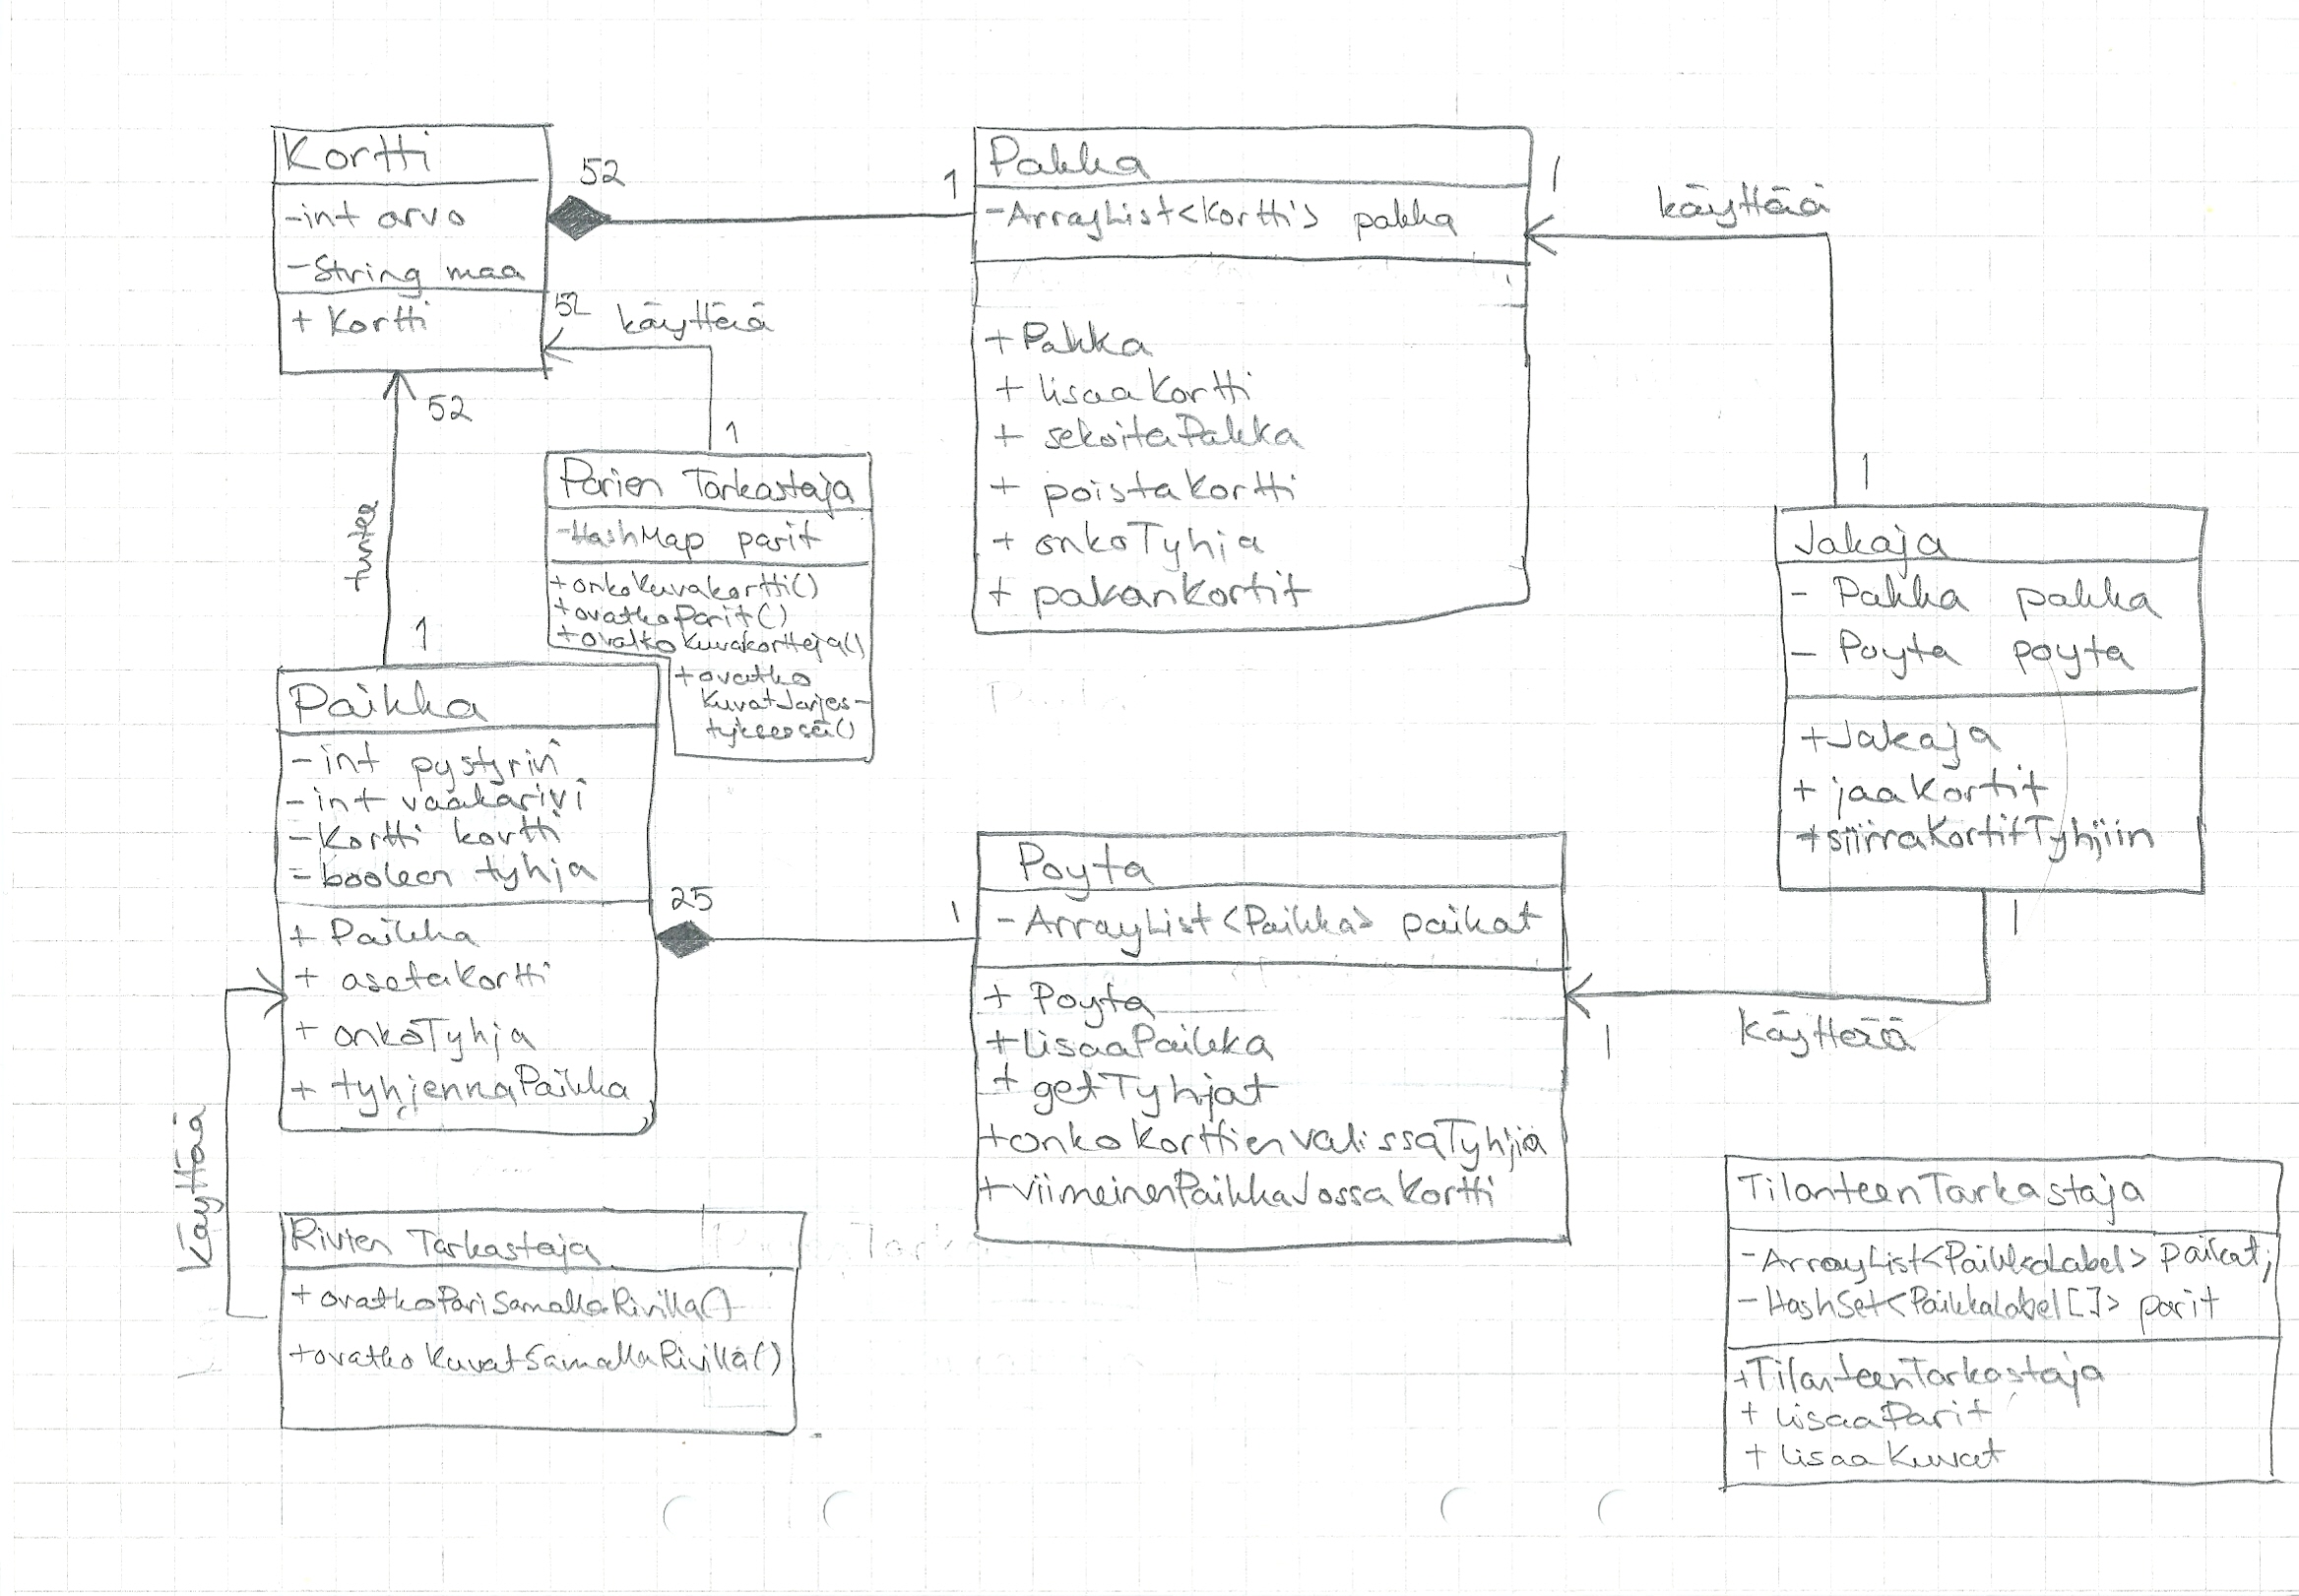 Kortti
-int arvo
-String maa
+ Kortti
52
1
Pakka
-ArrayList<Kortti> pakka
+ Pakka
+ lisaaKortti
+ sekoitaPakka
+ poistaKortti
+ onkoTyhja
+ pakanKortit
1
käyttää
1
52
käyttää
1
52
tuntee
1
Parien Tarkastaja
-HashMap parit
+onkoKuvakortti()
+ovatkoParit()
+ovatkoKuvakortteja()
+ovatko
KuvatJarjes-
tyksessä()
Jakaja
- Pakka pakka
- Poyta poyta
+Jakaja
+ jaaKortit
+siirraKortitTyhjiin
1
Käyttää
1
Paikka
-int pystyrivi
-int vaakarivi
-Kortti kortti
-boolean tyhja
+ Paikka
+ asetaKortti
+ onkoTyhja
+ tyhjennaPaikka
25
1
Poyta
- ArrayList<Paikka> paikat
+ Poyta
+lisaaPaikka
+ getTyhjat
+onkoKorttienValissaTyhjiä
+viimeinenPaikkaJossaKortti
Käyttää
Rivien Tarkastaja
+ ovatkoPariSamallaRivilla()
+ovatkoKuvatSamallaRivillä()
TilanteenTarkastaja
-ArrayList<PaikkaLabel> paikat;
-HashSet<PaikkaLabel[]> parit
+TilanteenTarkastaja
+ lisaaParit
+ lisaaKuvat